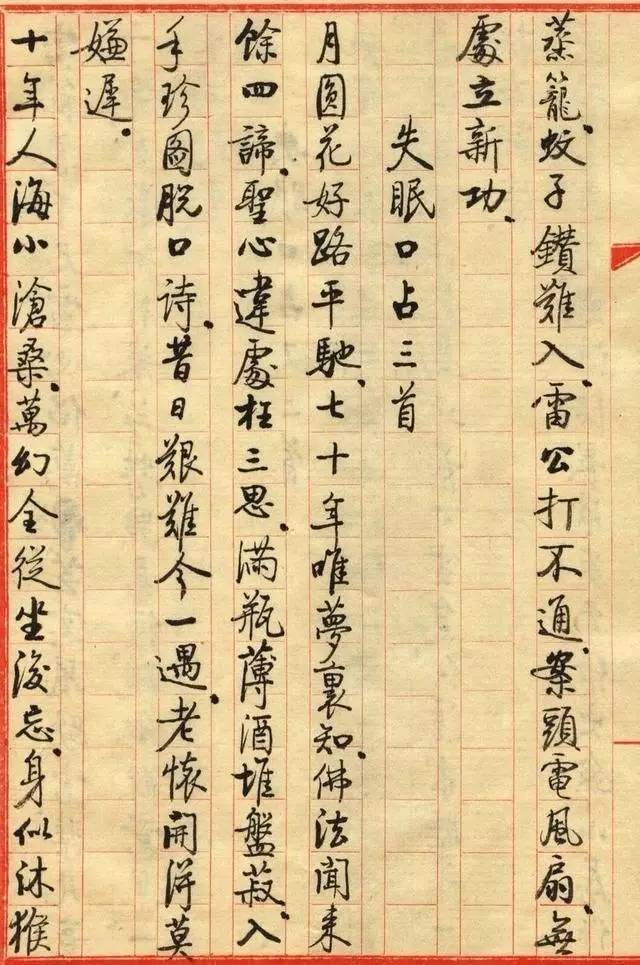 蒸籠。蚊子鑽難入。雷公打不通。案頭電風扇。無
處立新功。
失眠口占三首
月圓花好路平馳。七十年唯夢裏知。佛法聞來
餘四諦。聖心違處枉三思。滿瓶薄酒堆盤菽。入
手珍圖脫口詩。昔日艱難今一遇。老懷開得莫
嫌遲。
十年人海小滄桑。萬幻全從坐後忘。身似沐猴